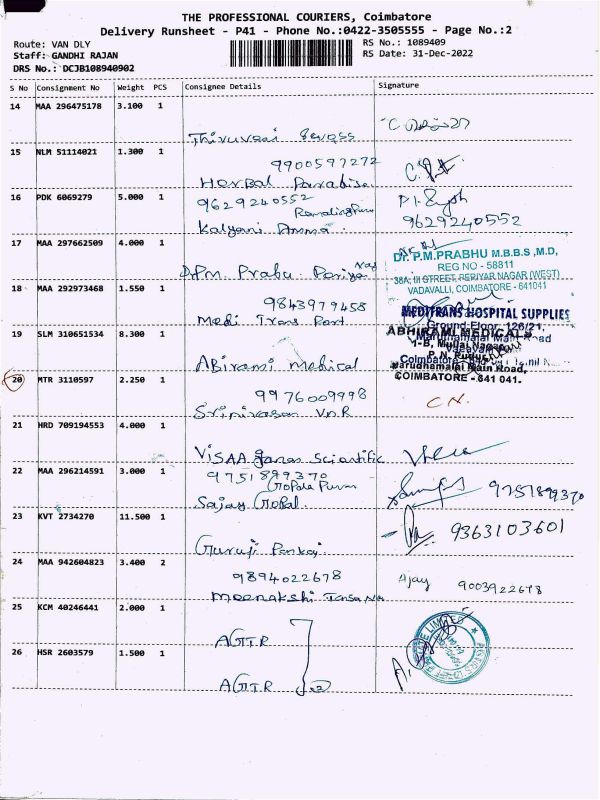 THE PROFESSIONAL COURIERS, Coimbatore
Delivery Runsheet - P41 - Phone No.:0422-3505555 - Page No.:2
Route: VAN DLY
RS No.: 1089409
Staff: GANDHI RAJAN
RS Date: 31-Dec-2022
DRS No.: DCJB108940902
S No Consignment No Weight PCS Consignee Details Signature
14 MAA 296475178 3.100 1
15 NLM 51114021 1.300 1
9900597272
Herbal Paradise
16 PDK 6069279 5.000 1
9629240552
9629240552
Kalyani Amma
17 MAA 297662509 4.000 1
Dr. P.M.PRABHU M.B.B.S.,M.D,
REG NO - 58811
38A, III STREET, PERIYAR NAGAR (WEST)
VADAVALLI, COIMBATORE - 641041
DPM Prabu
18 MAA 292973468 1.550 1
9843979458
Medi Trans Port
MEDITRANS HOSPITAL SUPPLIES
Ground Floor, 126/21,
19 SLM 310651534 8.300 1
ABHIRAMI MEDICALS
1-B, Mullai Nagar
Marudhamalai Main Road,
COIMBATORE - 641 041.
ABirami medical
20 MTR 3110597 2.250 1
9976009998
Srinivasan VNR
C.N.
21 HRD 709194553 4.000 1
VISAA Janas Scientific
22 MAA 296214591 3.000 1
9751899370
Gopala Puram
9751899370
Sajay Gopal
23 KVT 2734270 11.500 1
9363103601
Guruji Pankaj
24 MAA 942604823 3.400 2
9894022678
Ajay 9003922678
Meenakshi
25 KCM 40246441 2.000 1
AGTR
26 HSR 2603579 1.500 1
AGTR